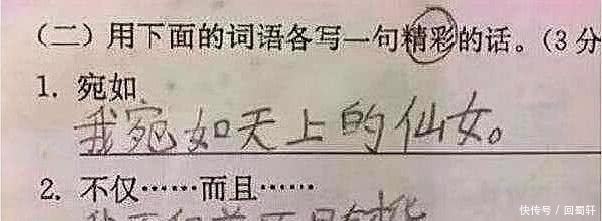 （二）用下面的词语各写一句精彩的话。（3分
1. 宛如
我宛如天上的仙女。
2. 不仅……而且……
快传号 / 回蜀轩